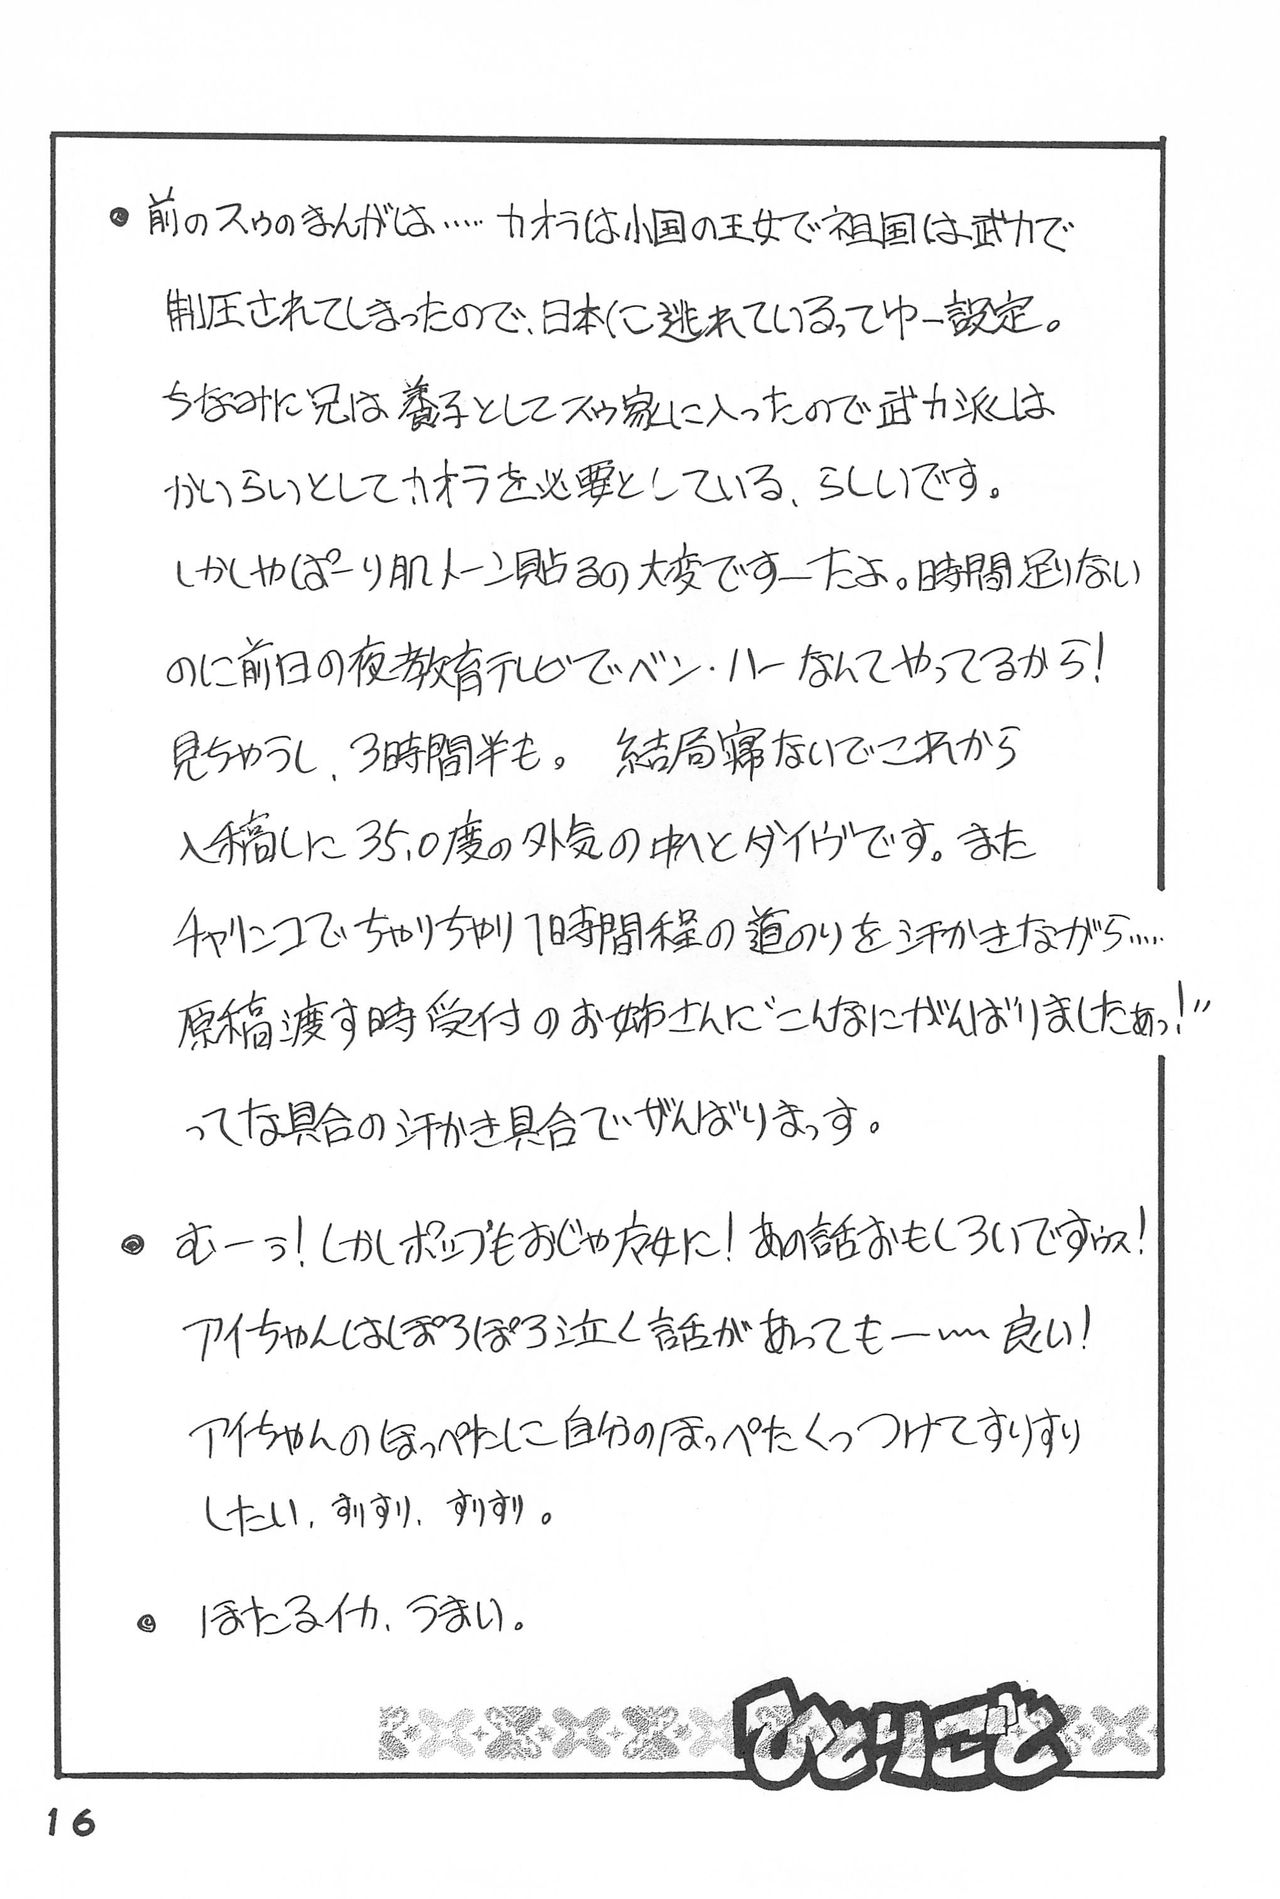 前のスゥのまんがは…… カオラは小国の王女で祖国は武力で
制圧されてしまったので、日本に逃れているってゆー設定。
ちなみに兄は養子としてスゥ家に入ったので武力派は
かいらいとしてカオラを必要としている、らしいです。
しかしやぱーり肌トーン貼るの大変ですーたよ。時間足りない
のに前日の夜教育テレビでベン・ハーなんてやってるから!
見ちゃうし、3時間半も。 結局寝ないでこれから
入稿しに35.0度の外気の中へとダイヴです。また
チャリンコでちゃりちゃり1時間程の道のりを汗かきながら……
原稿渡す時受付のお姉さんに"こんなにがんばりましたぁっ!"
ってな具合の汗かき具合でがんばりまっす。
むーっ!しかしポップもおじゃ魔女に!あの話おもしろいですゥス!
アイちゃんはぽろぽろ泣く話があってもー〜〜良い!
アイちゃんのほっぺたに自分のほっぺたくっつけてすりすり
したい、すりすり、すりすり。
ほたるイカ、うまい。
ひとりごと
16